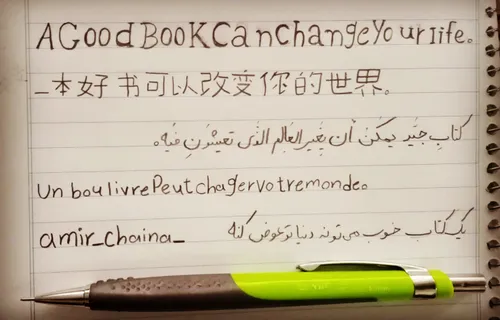 A Good Book Can change Your life.
一本好书可以改变你的世界。
كتاب جيد يمكن أن يغير العالم الذي تعيشون فيه.
Un bou livre Peut chager votre monde.
amir_chaina_
یک کتاب خوب می‌تونه دنیاتو عوض کنه